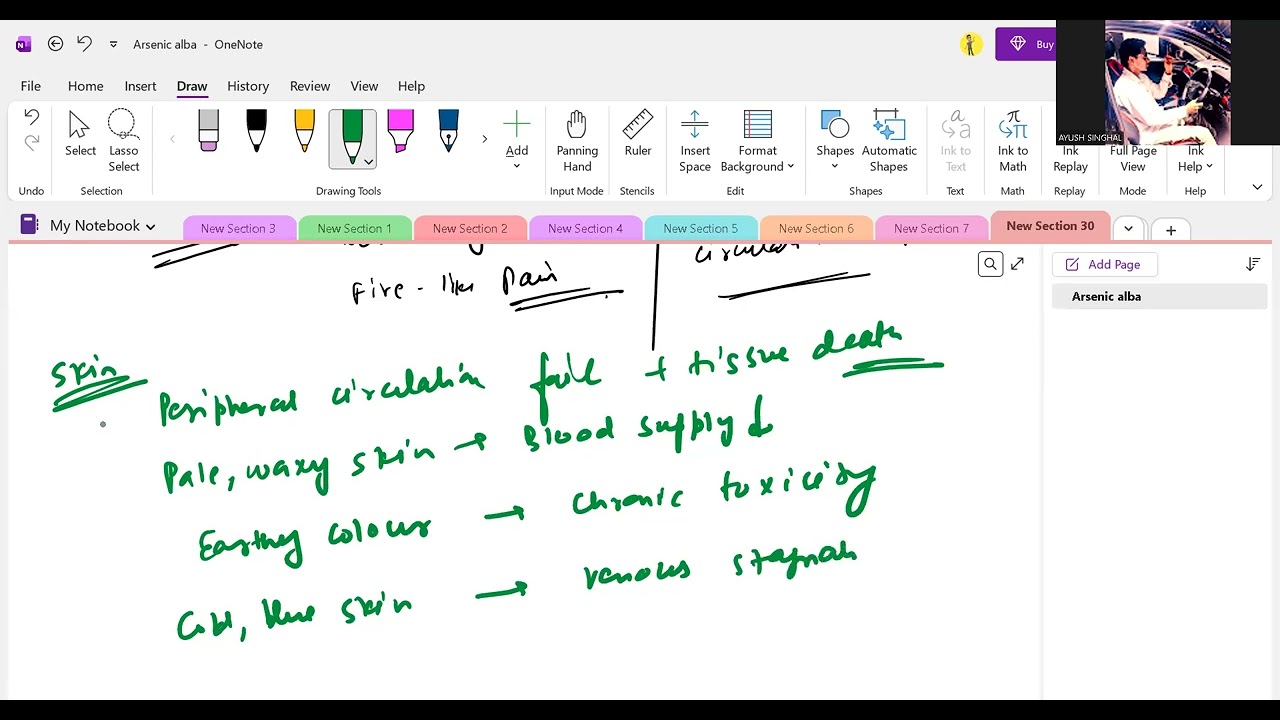 Arsenic alba - OneNote
Buy
AYUSH SINGHAL
File Home Insert Draw History Review View Help
Undo
Select
Lasso Select
Selection
Drawing Tools
Add
Panning Hand
Input Mode
Ruler
Stencils
Insert Space
Format Background
Edit
Shapes
Automatic Shapes
Shapes
Ink to Text
Text
Ink to Math
Math
Ink Replay
Replay
Full Page View
Mode
Ink Help
Help
My Notebook
New Section 3
New Section 1
New Section 2
New Section 4
New Section 5
New Section 6
New Section 7
New Section 30
Add Page
Arsenic alba
Fire - like Pain
Skin
Peripheral circulation fail + tissue death
Pale, waxy skin → Blood supply ↓
Earthy colour → chronic toxicity
Cold, blue skin → venous